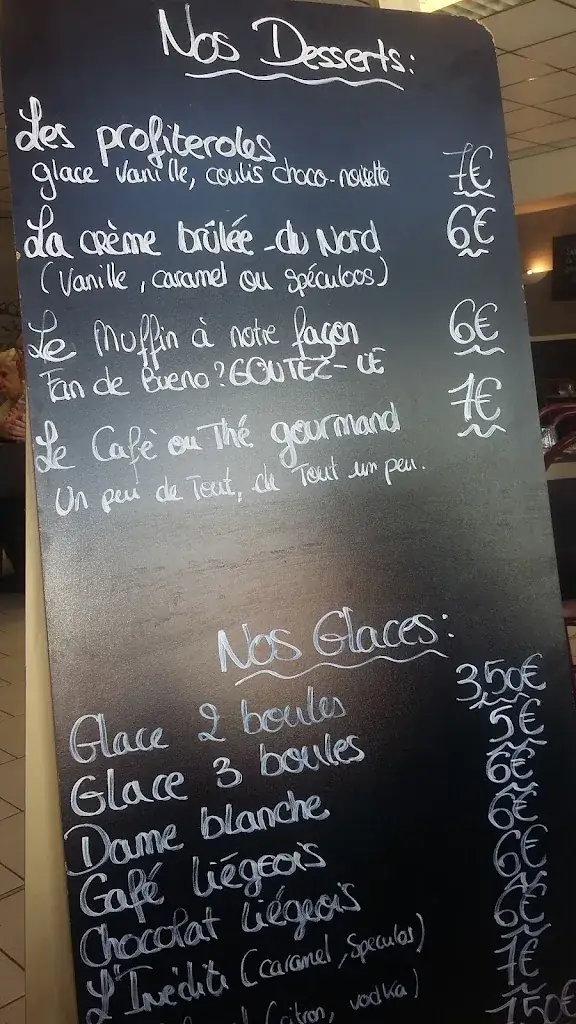 Nos Desserts:
Les profiteroles 7€
glace vanille, coulis choco-noisette
La crème brûlée du Nord 6€
(Vanille, caramel ou spéculoos)
Le Muffin à notre façon 6€
Fan de Bueno? GOUTEZ-LE
Le Cafè ou Thé gourmand 7€
Un peu de Tout, de Tout un peu.
Nos Glaces:
Glace 2 boules 3,50€
Glace 3 boules 5€
Dame blanche 6€
Café Liégeois 6€
Chocolat Liégeois 6€
L'Inédite (caramel, speculos) 6€
(citron, vodka) 7€
1,50€